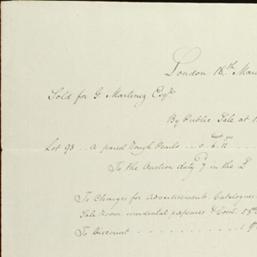 London 18th Mar
Sold for G. Martinez Esqr
By Public Sale at 1
Lot 98 .. A parcel Rough Pearls .. 0 .. 6. 12
To the Auction duty 7 in the £
To Charges for Advertisement Catalogues
Sale Room incidental expenses &
To Discount